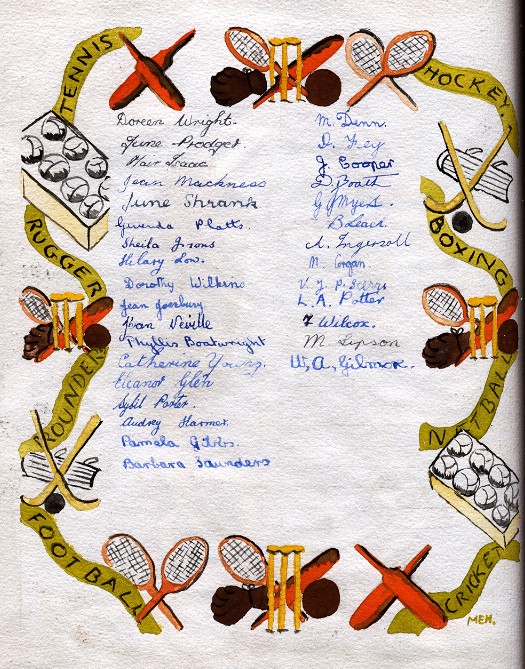 TENNIS
HOCKEY.
RUGGER
BOXING
ROUNDERS
NETBALL
FOOTBALL
CRICKET
Doreen Wright.
June Prodger.
Nair Isaac
Jean Mackness
June Shrank
Gwenda Platts.
Sheila Irons
Hilary Low.
Dorothy Wilkins
Jean
Joan Neville
Phyllis Boatwright
Catherine Young.
Eleanor Glen
Sybil Porter.
Audrey Harmer.
Pamela Gibbs.
Barbara Saunders
M. Denn.
D. Frey
J Cooper
D. Booth
G Myers.
B Leach.
A. Ingersoll
M. Corgan
V. J. P.
L. A. Potter
F Wilcox.
M Lipson
W. A. Gilmor.
MEH.